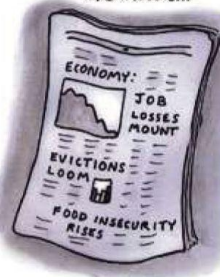 ECONOMY:
JOB
LOSSES
MOUNT
EVICTIONS
LOOM
FOOD INSECURITY
RISES